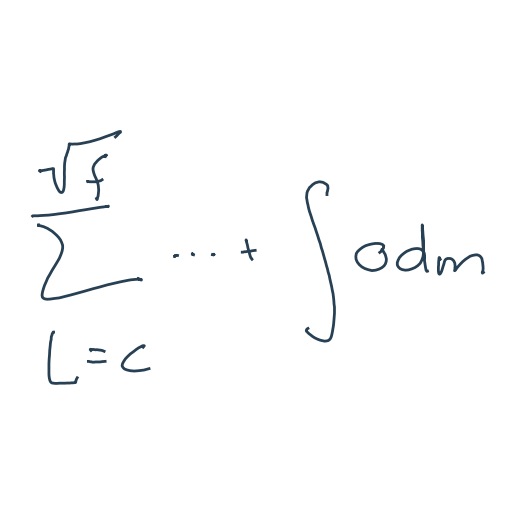 \sum_{L=c}^{\sqrt{f}} \cdots + \int o dm